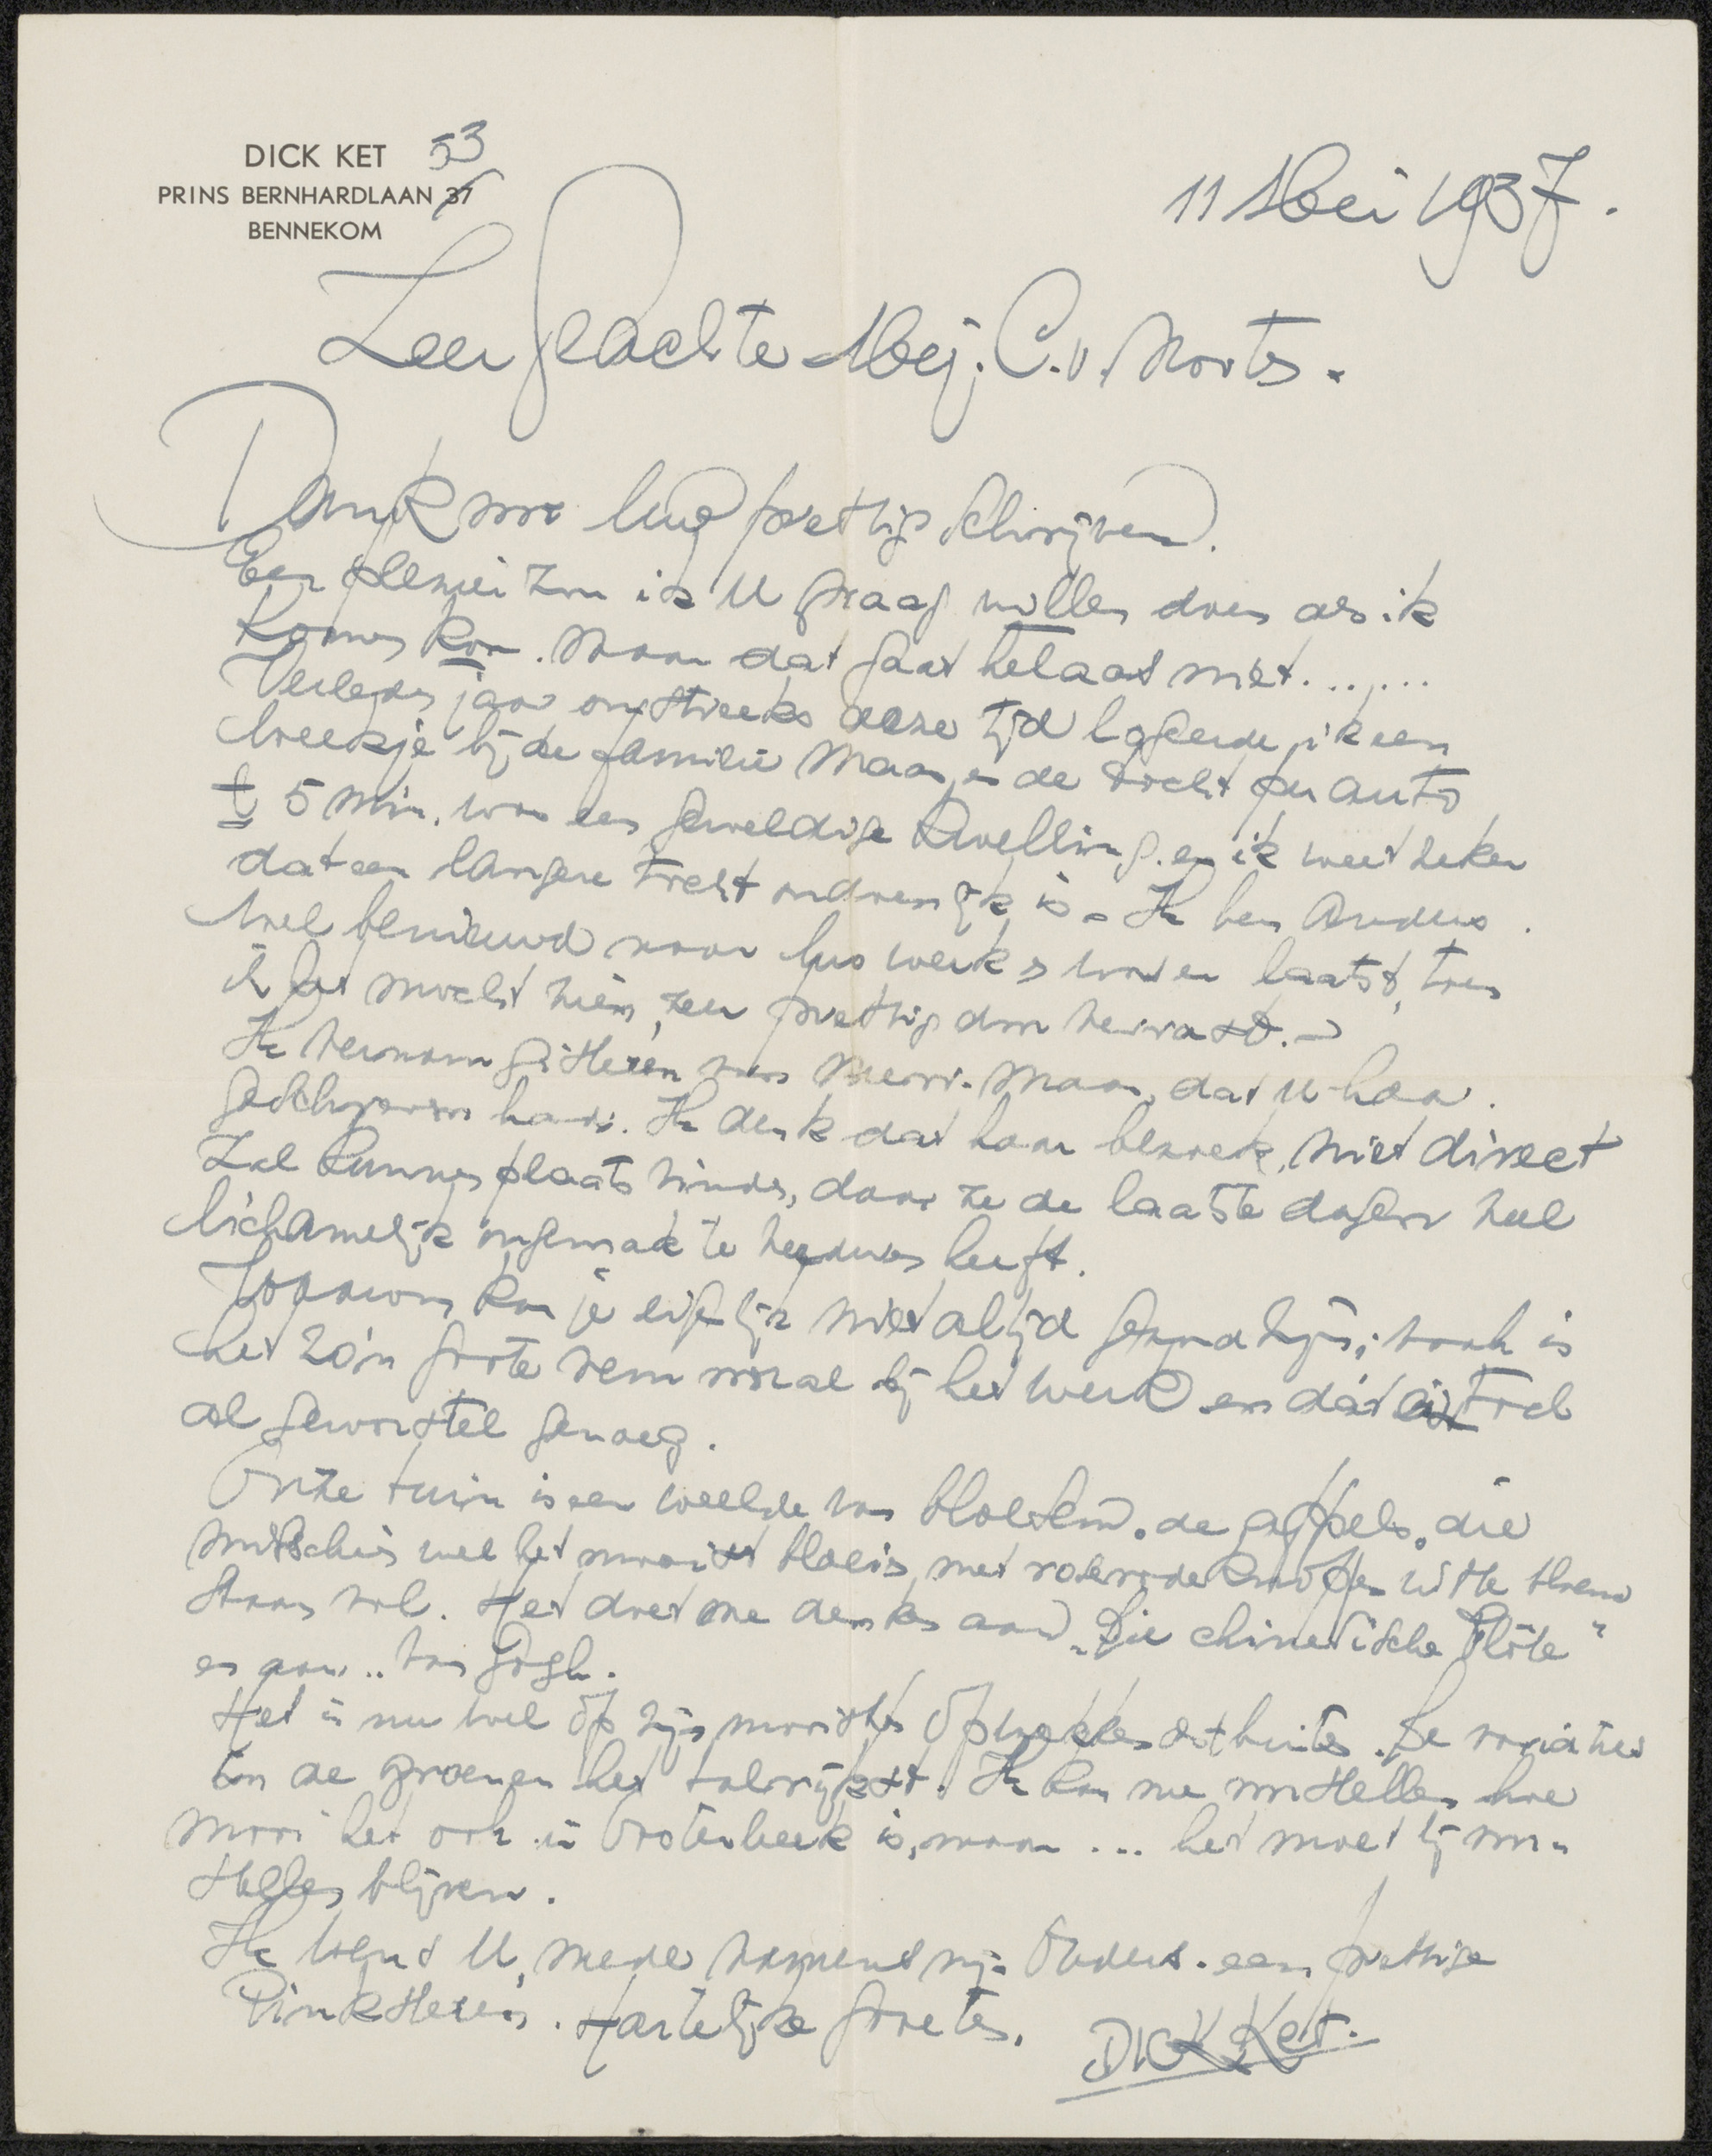 DICK KET 53
PRINS BERNHARDLAAN 37
BENNEKOM
11 Mei 1937.
Zeer Geachte Mej. C. v.
Dank voor Uw prettig schrijven.
Een plezier zou ik U graag willen doen als ik
komen kon. Maar dat gaat helaas niet......
Verleden jaar omstreeks deze tijd logeerde ik een
weekje bij de familie Maas, en de tocht per auto
± 5 min. was een geweldige kwelling. en ik weet zeker
dat een langere tocht ondoenlijk is. Ik ben anders
wel benieuwd naar Uw werk, en was er laatst, toen
ik het mocht zien, zeer prettig door verrast.
Ik vernam gisteren van Mevr. Maas, dat U haar
geschreven had. Ik denk dat haar bezoek, niet direct
zal kunnen plaats vinden, daar ze de laatste dagen veel
lichamelijk ongemak te verduren heeft.
kan je eigenlijk niet altijd gezond zijn; vaak is
het zo'n grote rem vooral bij het werk en dát is toch
al geworstel genoeg.
Onze tuin is een weelde van bloesem. de appels, die
misschien wel het mooist bloeien, met roserode knoppen witte bloem
staan vol. Het doet me denken aan "Die chinesische Flöte"
en aan.. van Gogh.
Het is nu wel op zijn mooist buiten. De variatie
in de groenen het talrijkst. Ik kan me voorstellen hoe
mooi het ook in Oosterbeek is, maar ... het moet bij voor-
stellen blijven.
Ik wens U, mede namens mijn Ouders. een prettige
Pinksteren. Hartelijke groeten,
DICK Ket.